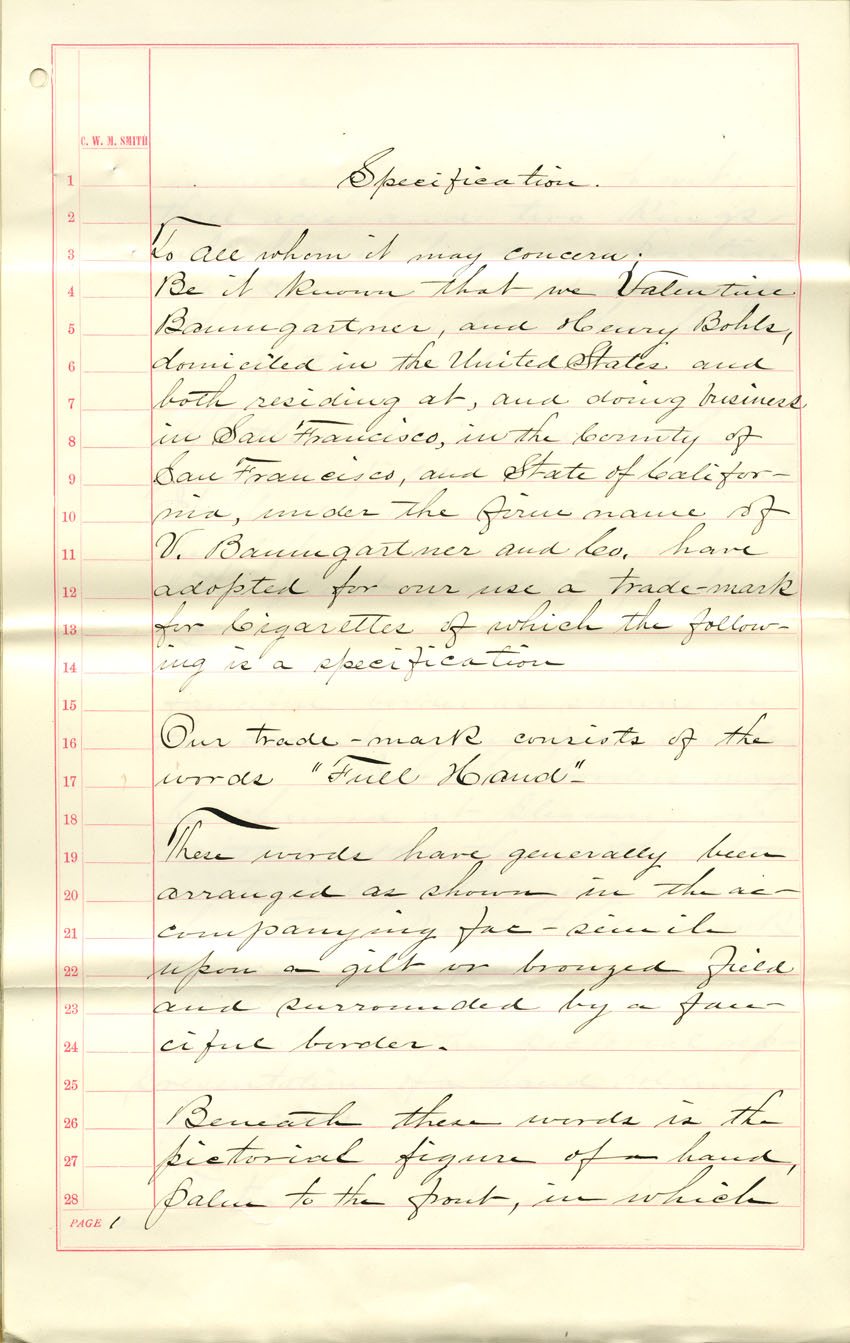 C. W. M. SMITH
1 Specification.
2
3 To all whom it may concern;
4 Be it known that we Valentine
5 Baumgartner, and Henry Bohls,
6 domiciled in the United States and
7 both residing at, and doing business
8 in San Francisco, in the County of
9 San Francisco, and State of Califor-
10 nia, under the firm name of
11 V. Baumgartner and Co. have
12 adopted for our use a trade-mark
13 for Cigarettes of which the follow-
14 ing is a specification
15
16 Our trade-mark consists of the
17 words "Full Hand"-
18
19 These words have generally been
20 arranged as shown in the ac-
21 companying fac-simile
22 upon a gilt or bronzed field
23 and surrounded by a fan-
24 ciful border.
25
26 Beneath these words is the
27 pictorial figure of a hand,
28 palm to the front, in which
PAGE 1